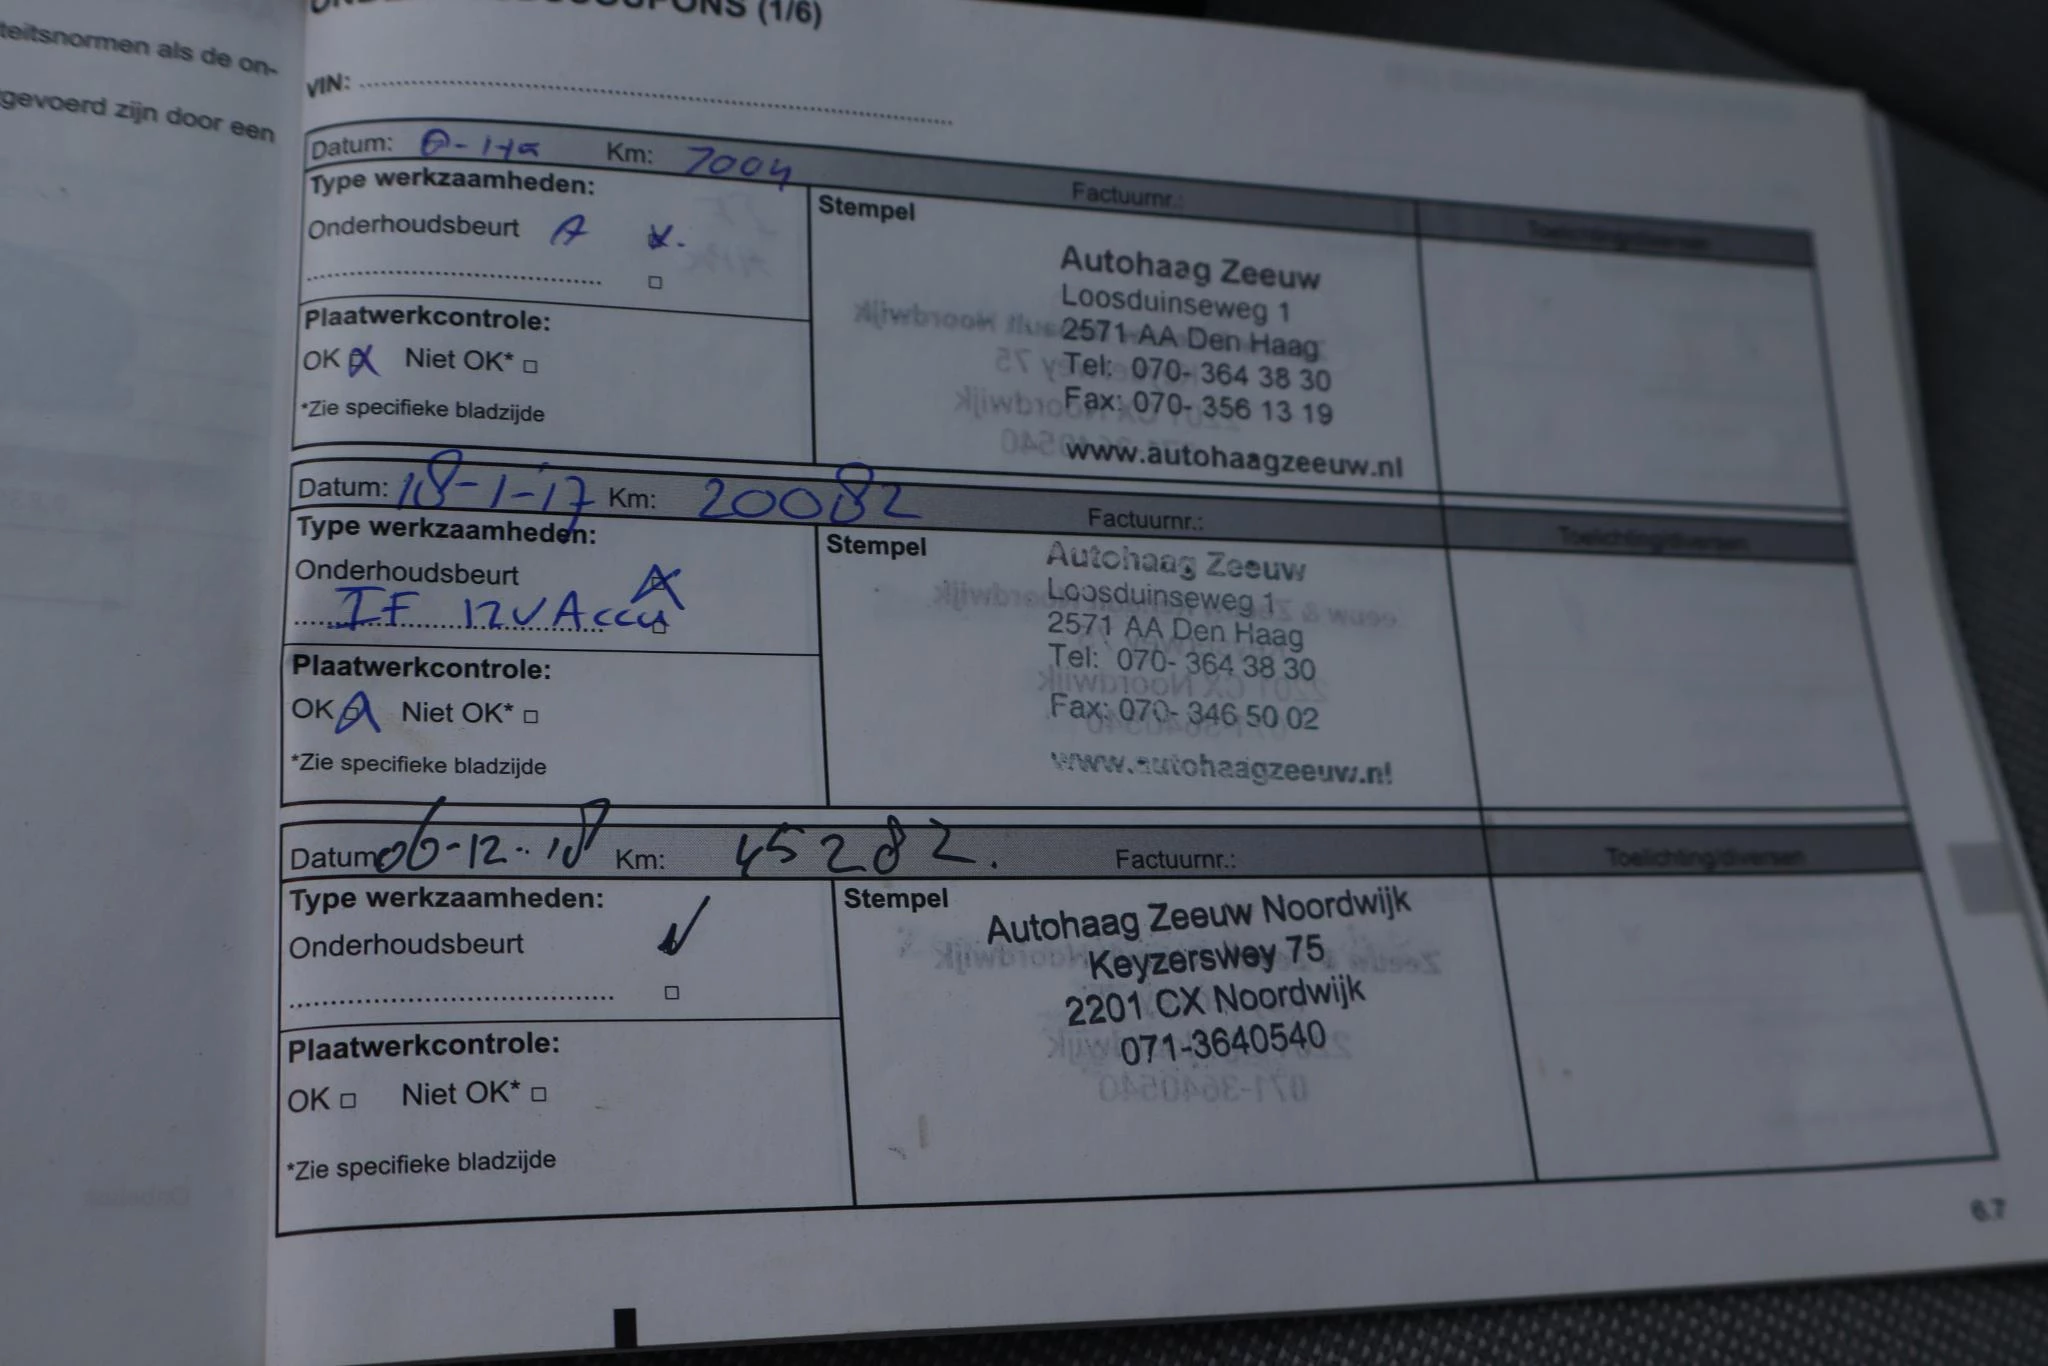 teitsnormen als de on-
gevoerd zijn door een
(1/6)
VIN:
Datum: Km: 7004 Factuurnr.:
Type werkzaamheden:
Stempel
Onderhoudsbeurt A
Plaatwerkcontrole:
OK Niet OK*
*Zie specifieke bladzijde
Autohaag Zeeuw
Loosduinseweg 1
2571 AA Den Haag
Tel: 070- 364 38 30
Fax: 070- 356 13 19
www.autohaagzeeuw.nl
Datum: 18-1-17 Km: 20082 Factuurnr.: Toelichting/diversen
Type werkzaamheden:
Stempel
Onderhoudsbeurt
IF 12V Accu
Plaatwerkcontrole:
OK Niet OK*
*Zie specifieke bladzijde
Autohaag Zeeuw
Loosduinseweg 1
2571 AA Den Haag
Tel: 070- 364 38 30
Fax: 070- 346 50 02
www.autohaagzeeuw.nl
Datum 06-12-18 Km: 45282. Factuurnr.: Toelichting/diversen
Type werkzaamheden:
Stempel
Onderhoudsbeurt
Plaatwerkcontrole:
OK Niet OK*
*Zie specifieke bladzijde
Autohaag Zeeuw Noordwijk
Keyzerswey 75
2201 CX Noordwijk
071-3640540
6.7